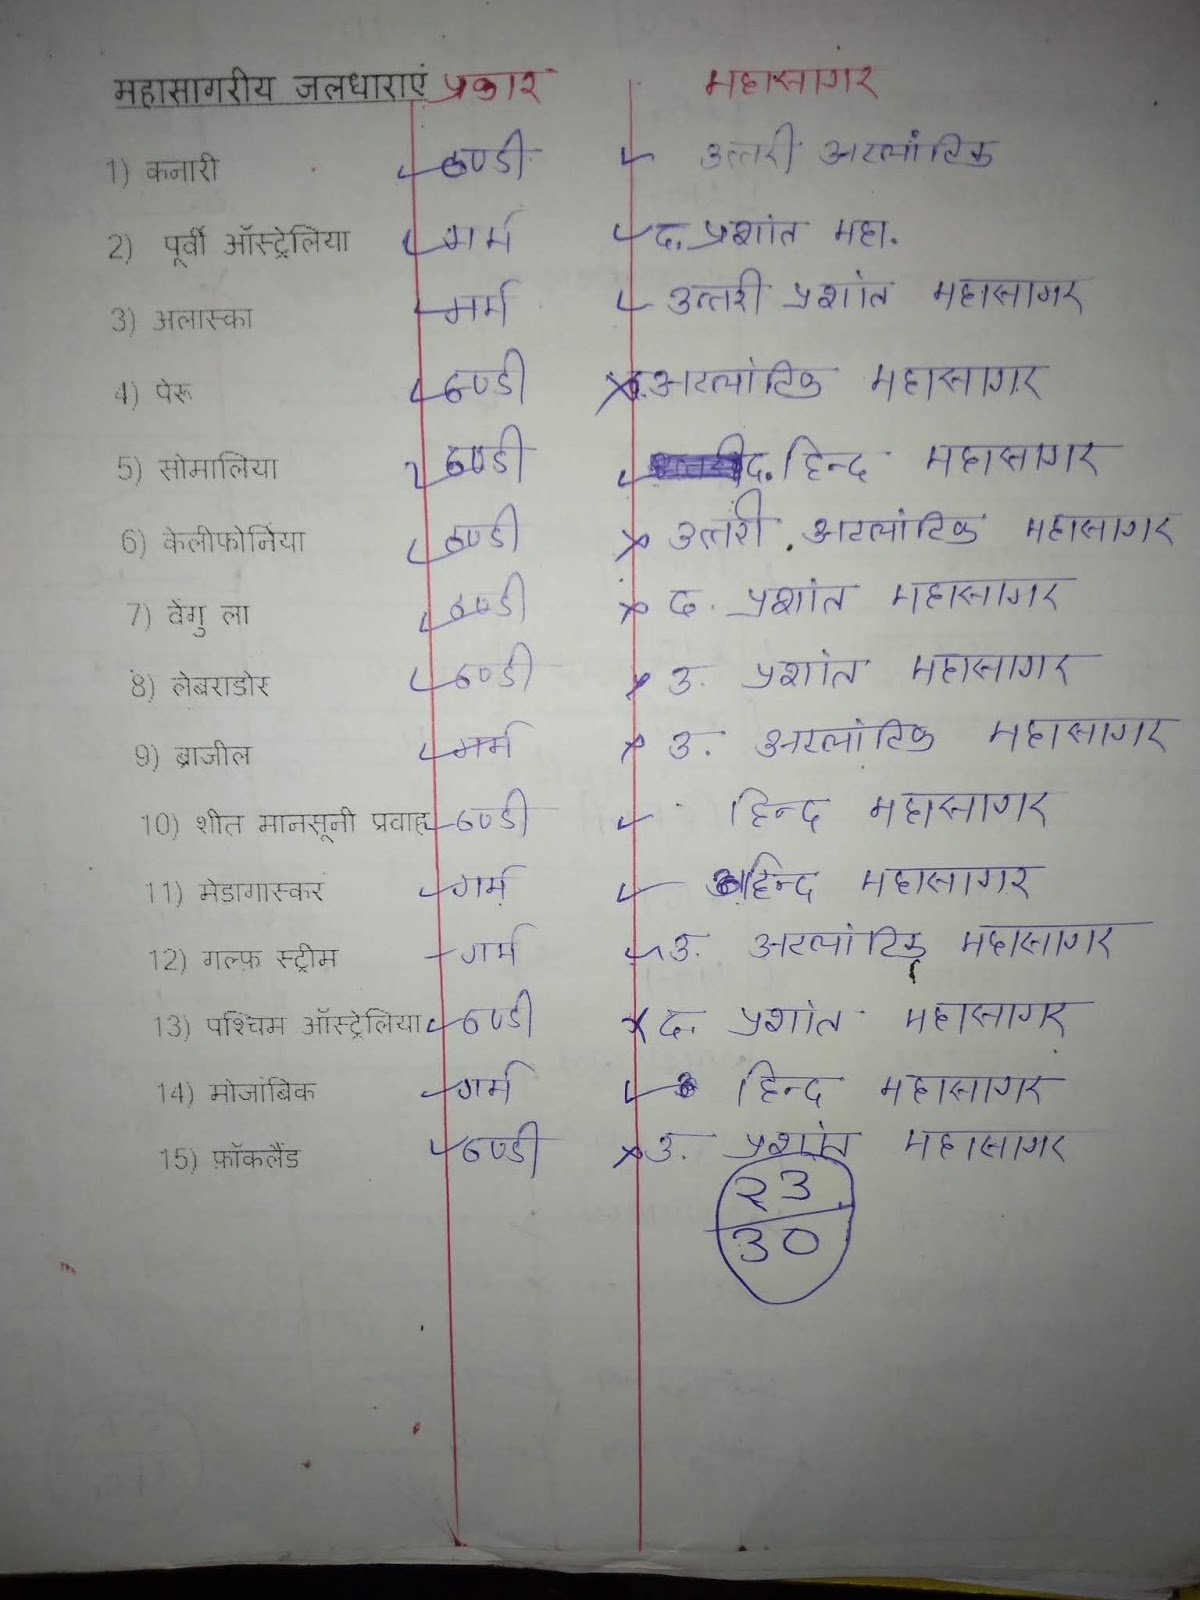 महासागरीय जलधाराएं प्रकार महासागर
1) कनारी ठण्डी उत्तरी अटलांटिक
2) पूर्वी ऑस्ट्रेलिया गर्म द. प्रशांत महा.
3) अलास्का गर्म उत्तरी प्रशांत महासागर
4) पेरू ठण्डी द. अटलांटिक महासागर
5) सोमालिया ठण्डी द. हिन्द महासागर
6) केलीफोर्निया ठण्डी उत्तरी अटलांटिक महासागर
7) वेंगु ला ठण्डी द. प्रशांत महासागर
8) लेबराडोर ठण्डी उ. प्रशांत महासागर
9) ब्राजील गर्म उ. अटलांटिक महासागर
10) शीत मानसूनी प्रवाह ठण्डी हिन्द महासागर
11) मेडागास्कर गर्म हिन्द महासागर
12) गल्फ़ स्ट्रीम गर्म उ. अटलांटिक महासागर
13) पश्चिम ऑस्ट्रेलिया ठण्डी द. प्रशांत महासागर
14) मोजांबिक गर्म हिन्द महासागर
15) फ़ॉकलैंड ठण्डी उ. प्रशांत महासागर
23
30